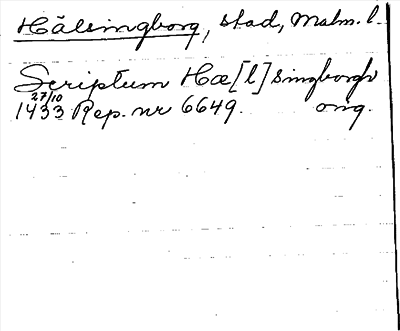 Hälsingborg, stad, Malm. l.
Scriptum Hæ[l]singborgh
27/10
1433 Rep. nr 6649. orig.